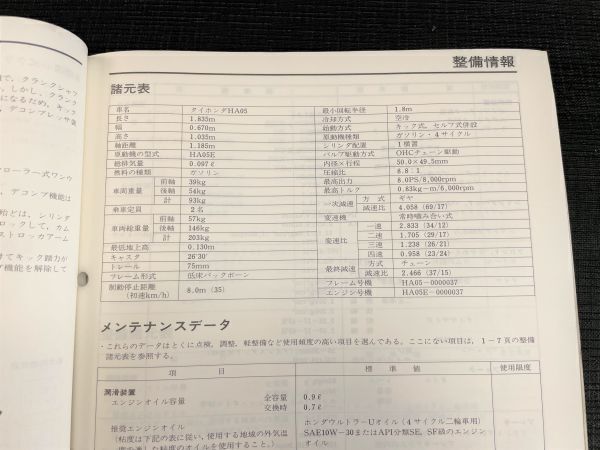 整備情報
で、クランクシャフ
しかし、クランク
になるため、キック
、デコンプレッサ装
ローラー式ワンウ
、デコンプ機能は
始どは、シリンダ
ロックして、カム
ストロッカアーム
けてキック踏力が
プ機能を解除して
諸元表
車名 タイホンダHA05
長さ 1.835m
幅 0.670m
高さ 1.035m
軸距離 1.185m
原動機の型式 HA05E
総排気量 0.097ℓ
燃料の種類 ガソリン
車両重量 前軸 39kg
後軸 54kg
計 93kg
乗車定員 2名
車両総重量 前軸 57kg
後軸 146kg
計 203kg
最低地上高 0.130m
キャスタ 26°30′
トレール 75mm
フレーム形式 低床バックボーン
制動停止距離
(初速km/h) 8.0m (35)
最小回転半径 1.8m
冷却方式 空冷
始動方式 キック式、セルフ式併設
原動機種類 ガソリン・4サイクル
シリンダ配置 1横置
バルブ駆動方式 OHCチェーン駆動
内径×行程 50.0×49.5mm
圧縮比 8.8:1
最高出力 8.0PS/8,000rpm
最高トルク 0.83kg-m/6,000rpm
一次減速 方式 ギヤ
減速比 4.058 (69/17)
変速機 常時噛み合い式
変速比 一速 2.833 (34/12)
二速 1.705 (29/17)
三速 1.238 (26/21)
四速 0.958 (23/24)
最終減速 方式 チェーン
減速比 2.466 (37/15)
フレーム号機 HA05-0000037
エンジン号機 HA05E-0000037
メンテナンスデータ
・これらのデータはとくに点検、調整、軽整備など使用頻度の高い項目を選んである。ここにない項目は、1-7頁の整備
諸元表を参照する。
項目 標準値 使用限度
潤滑装置
エンジンオイル容量 全容量 0.9ℓ
交換時 0.7ℓ
推奨エンジンオイル ホンダウルトラ-Uオイル(4サイクル二輪車用)
(粘度は下記の表に従い、使用する地域の外気温 SAE10W-30またはAPI分類SE、SF級のエンジン
度に適した粘度のオイルを使用すること。) オイル